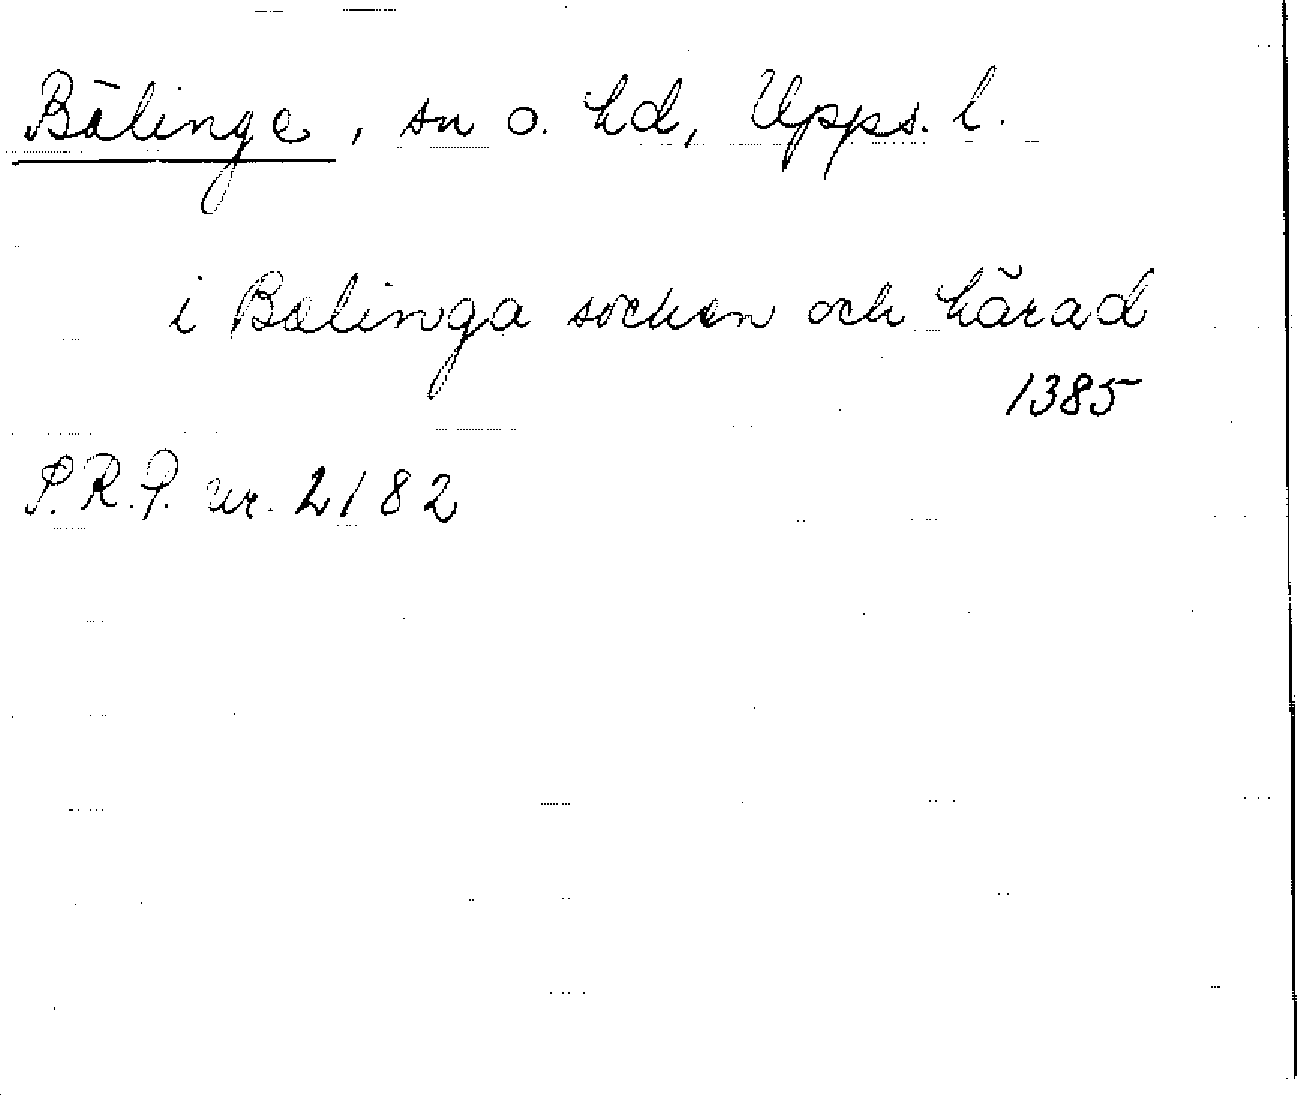 Bälinge, sn o. hd, Upps. l.
i Bælinga socken och härad
1385
S.R.P. nr. 2182